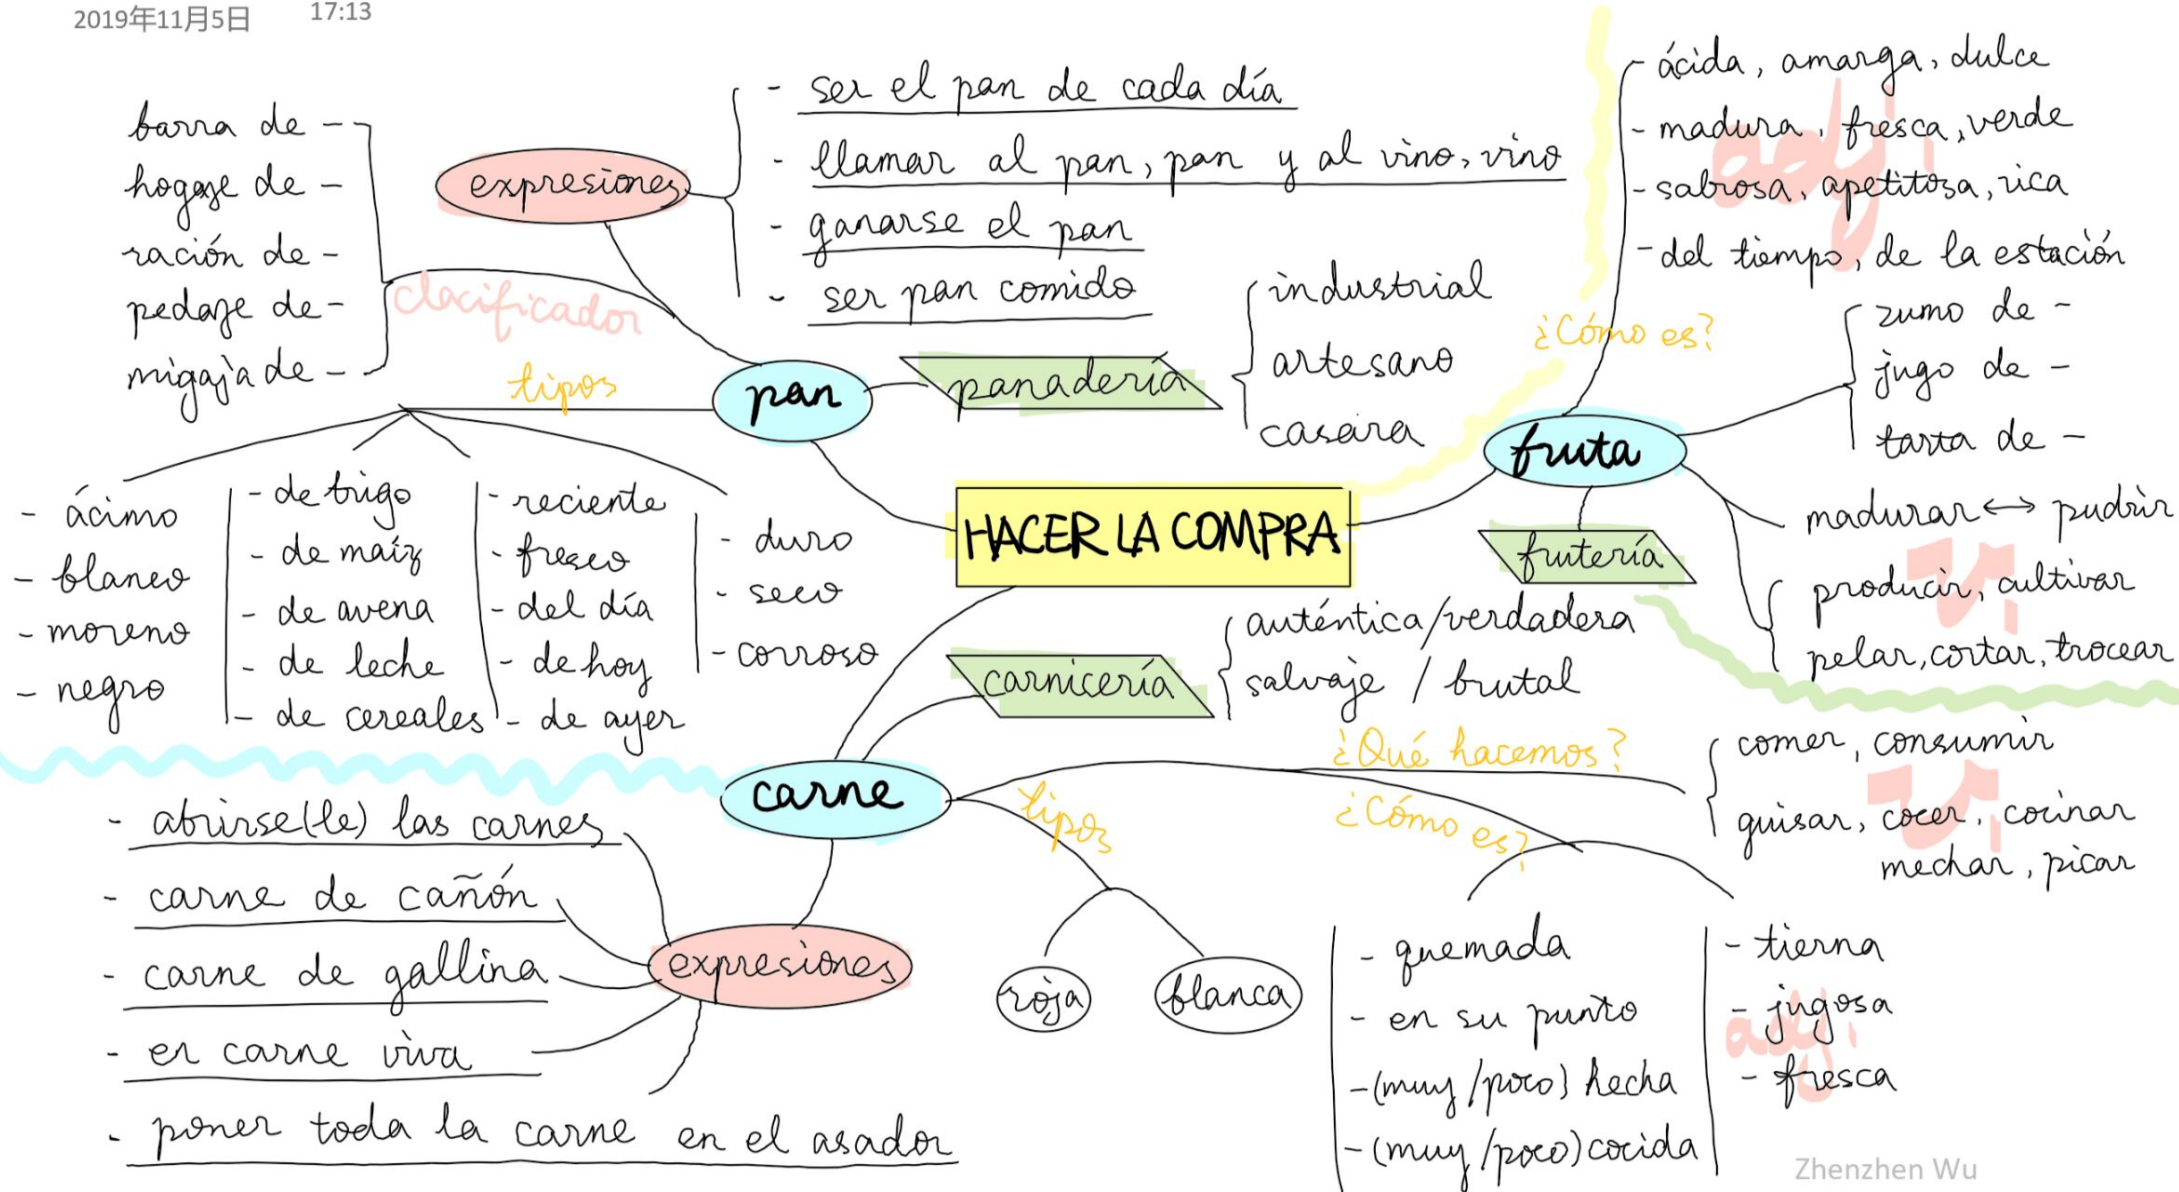 2019年11月5日 17:13
expresiones
- ser el pan de cada día
- llamar al pan, pan y al vino, vino
- ganarse el pan
- ser pan comido
barra de -
hogaze de -
ración de -
pedaze de -
migaja de -
clacificador
tipos
pan
panadería
industrial
artesano
casera
- ácimo
- blanco
- moreno
- negro
- de trigo
- de maíz
- de avena
- de leche
- de cereales
- reciente
- fresco
- del día
- de hoy
- de ayer
- duro
- seco
- corroso
HACER LA COMPRA
¿Cómo es?
- ácida, amarga, dulce
- madura, fresca, verde
- sabrosa, apetitosa, rica
- del tiempo, de la estación
adj.
fruta
zumo de -
jugo de -
tarta de -
frutería
madurar ↔ pudrir
producir, cultivar
pelar, cortar, trocear
v.
carnicería
auténtica/verdadera
salvaje / brutal
carne
¿Qué hacemos?
comer, consumir
guisar, cocer, cocinar
mechar, picar
v.
tipos
roja
blanca
¿Cómo es?
- quemada
- en su punto
- (muy/poco) hecha
- (muy/poco) cocida
- tierna
- jugosa
- fresca
adj.
expresiones
- abrirse(le) las carnes
- carne de cañón
- carne de gallina
- en carne viva
- poner toda la carne en el asador
Zhenzhen Wu